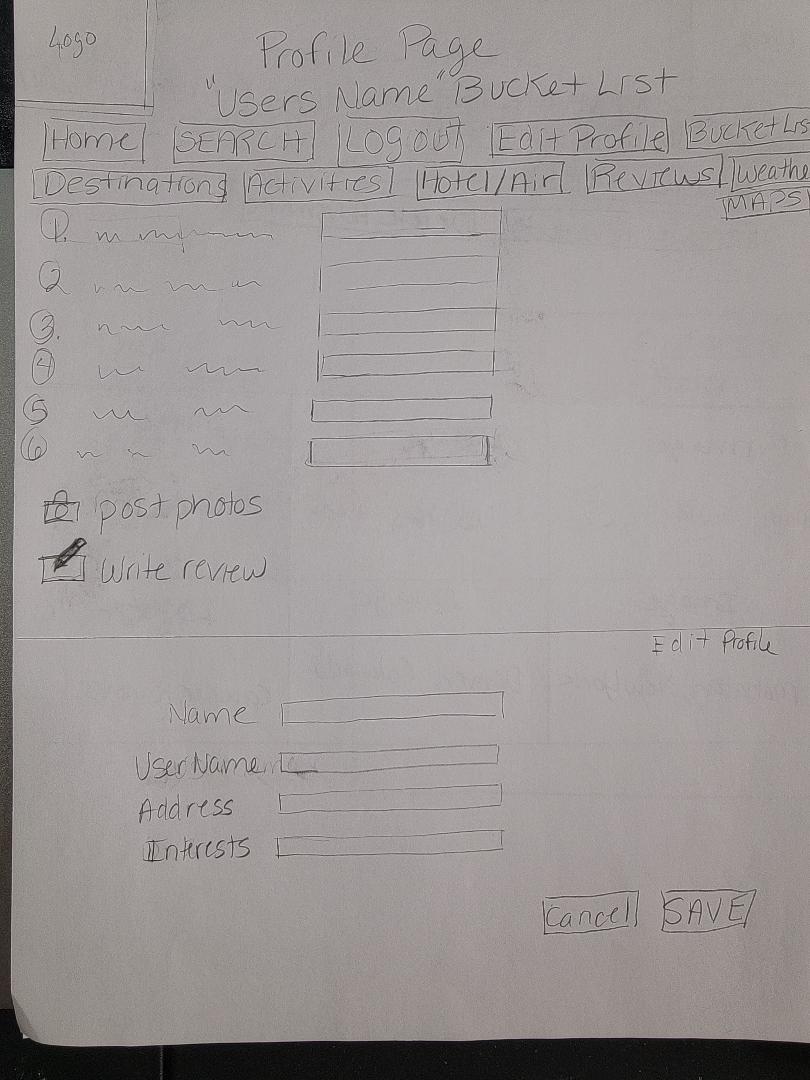 Logo
Profile Page
"Users Name" Bucket List
Home SEARCH Logout Edit Profile Bucket Lis
Destinations Activities Hotel/Air Reviews Weathe
MAPS
1.
2
3.
4
5
6
post photos
Write review
Edit Profile
Name
UserName
Address
Interests
Cancel SAVE